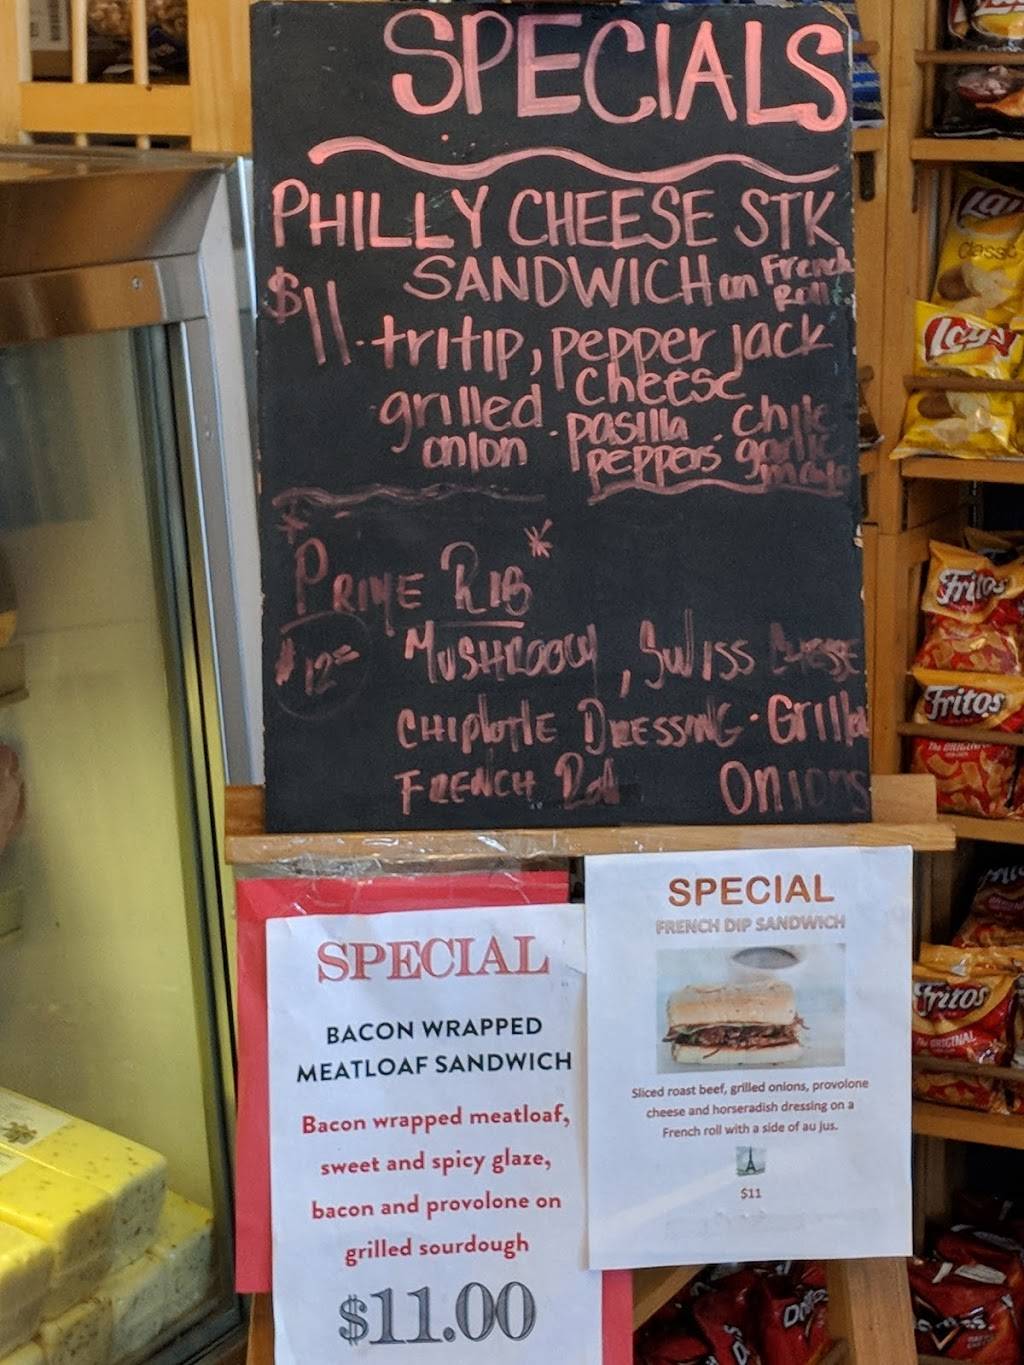 SPECIALS
PHILLY CHEESE STK
SANDWICH on French Roll
$11 · tritip, pepper jack
cheese
grilled onion · pasilla peppers · chile garlic mayo
* PRIME RIB *
$12 MUSHROOM, SWISS CHEESE
CHIPOTLE DRESSING · Grilled
FRENCH Roll ONIONS
SPECIAL
BACON WRAPPED
MEATLOAF SANDWICH
Bacon wrapped meatloaf,
sweet and spicy glaze,
bacon and provolone on
grilled sourdough
$11.00
SPECIAL
FRENCH DIP SANDWICH
Sliced roast beef, grilled onions, provolone
cheese and horseradish dressing on a
French roll with a side of au jus.
$11
Classic
Lay's
Fritos
Fritos
THE ORIGINAL
Fritos
THE ORIGINAL